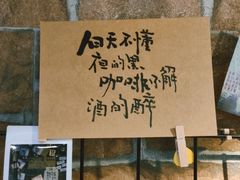 白天不懂
夜的黑
咖啡不解
酒的醉